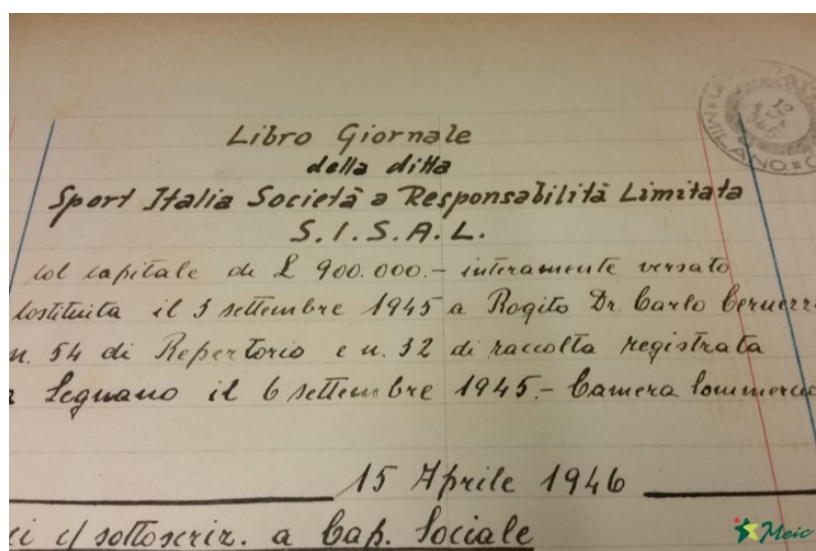 Libro Giornale
della ditta
Sport Italia Società a Responsabilità Limitata
S.I.S.A.L.
col capitale di £ 900.000.- interamente versato
Costituita il 3 settembre 1945 a Rogito Dr. Carlo
n. 54 di Repertorio e n. 32 di raccolta registrata
a Legnano il 6 settembre 1945.- Camera Commercio
15 Aprile 1946
ci c/ sottoscriz. a Cap. Sociale
12
MILANO
Meic